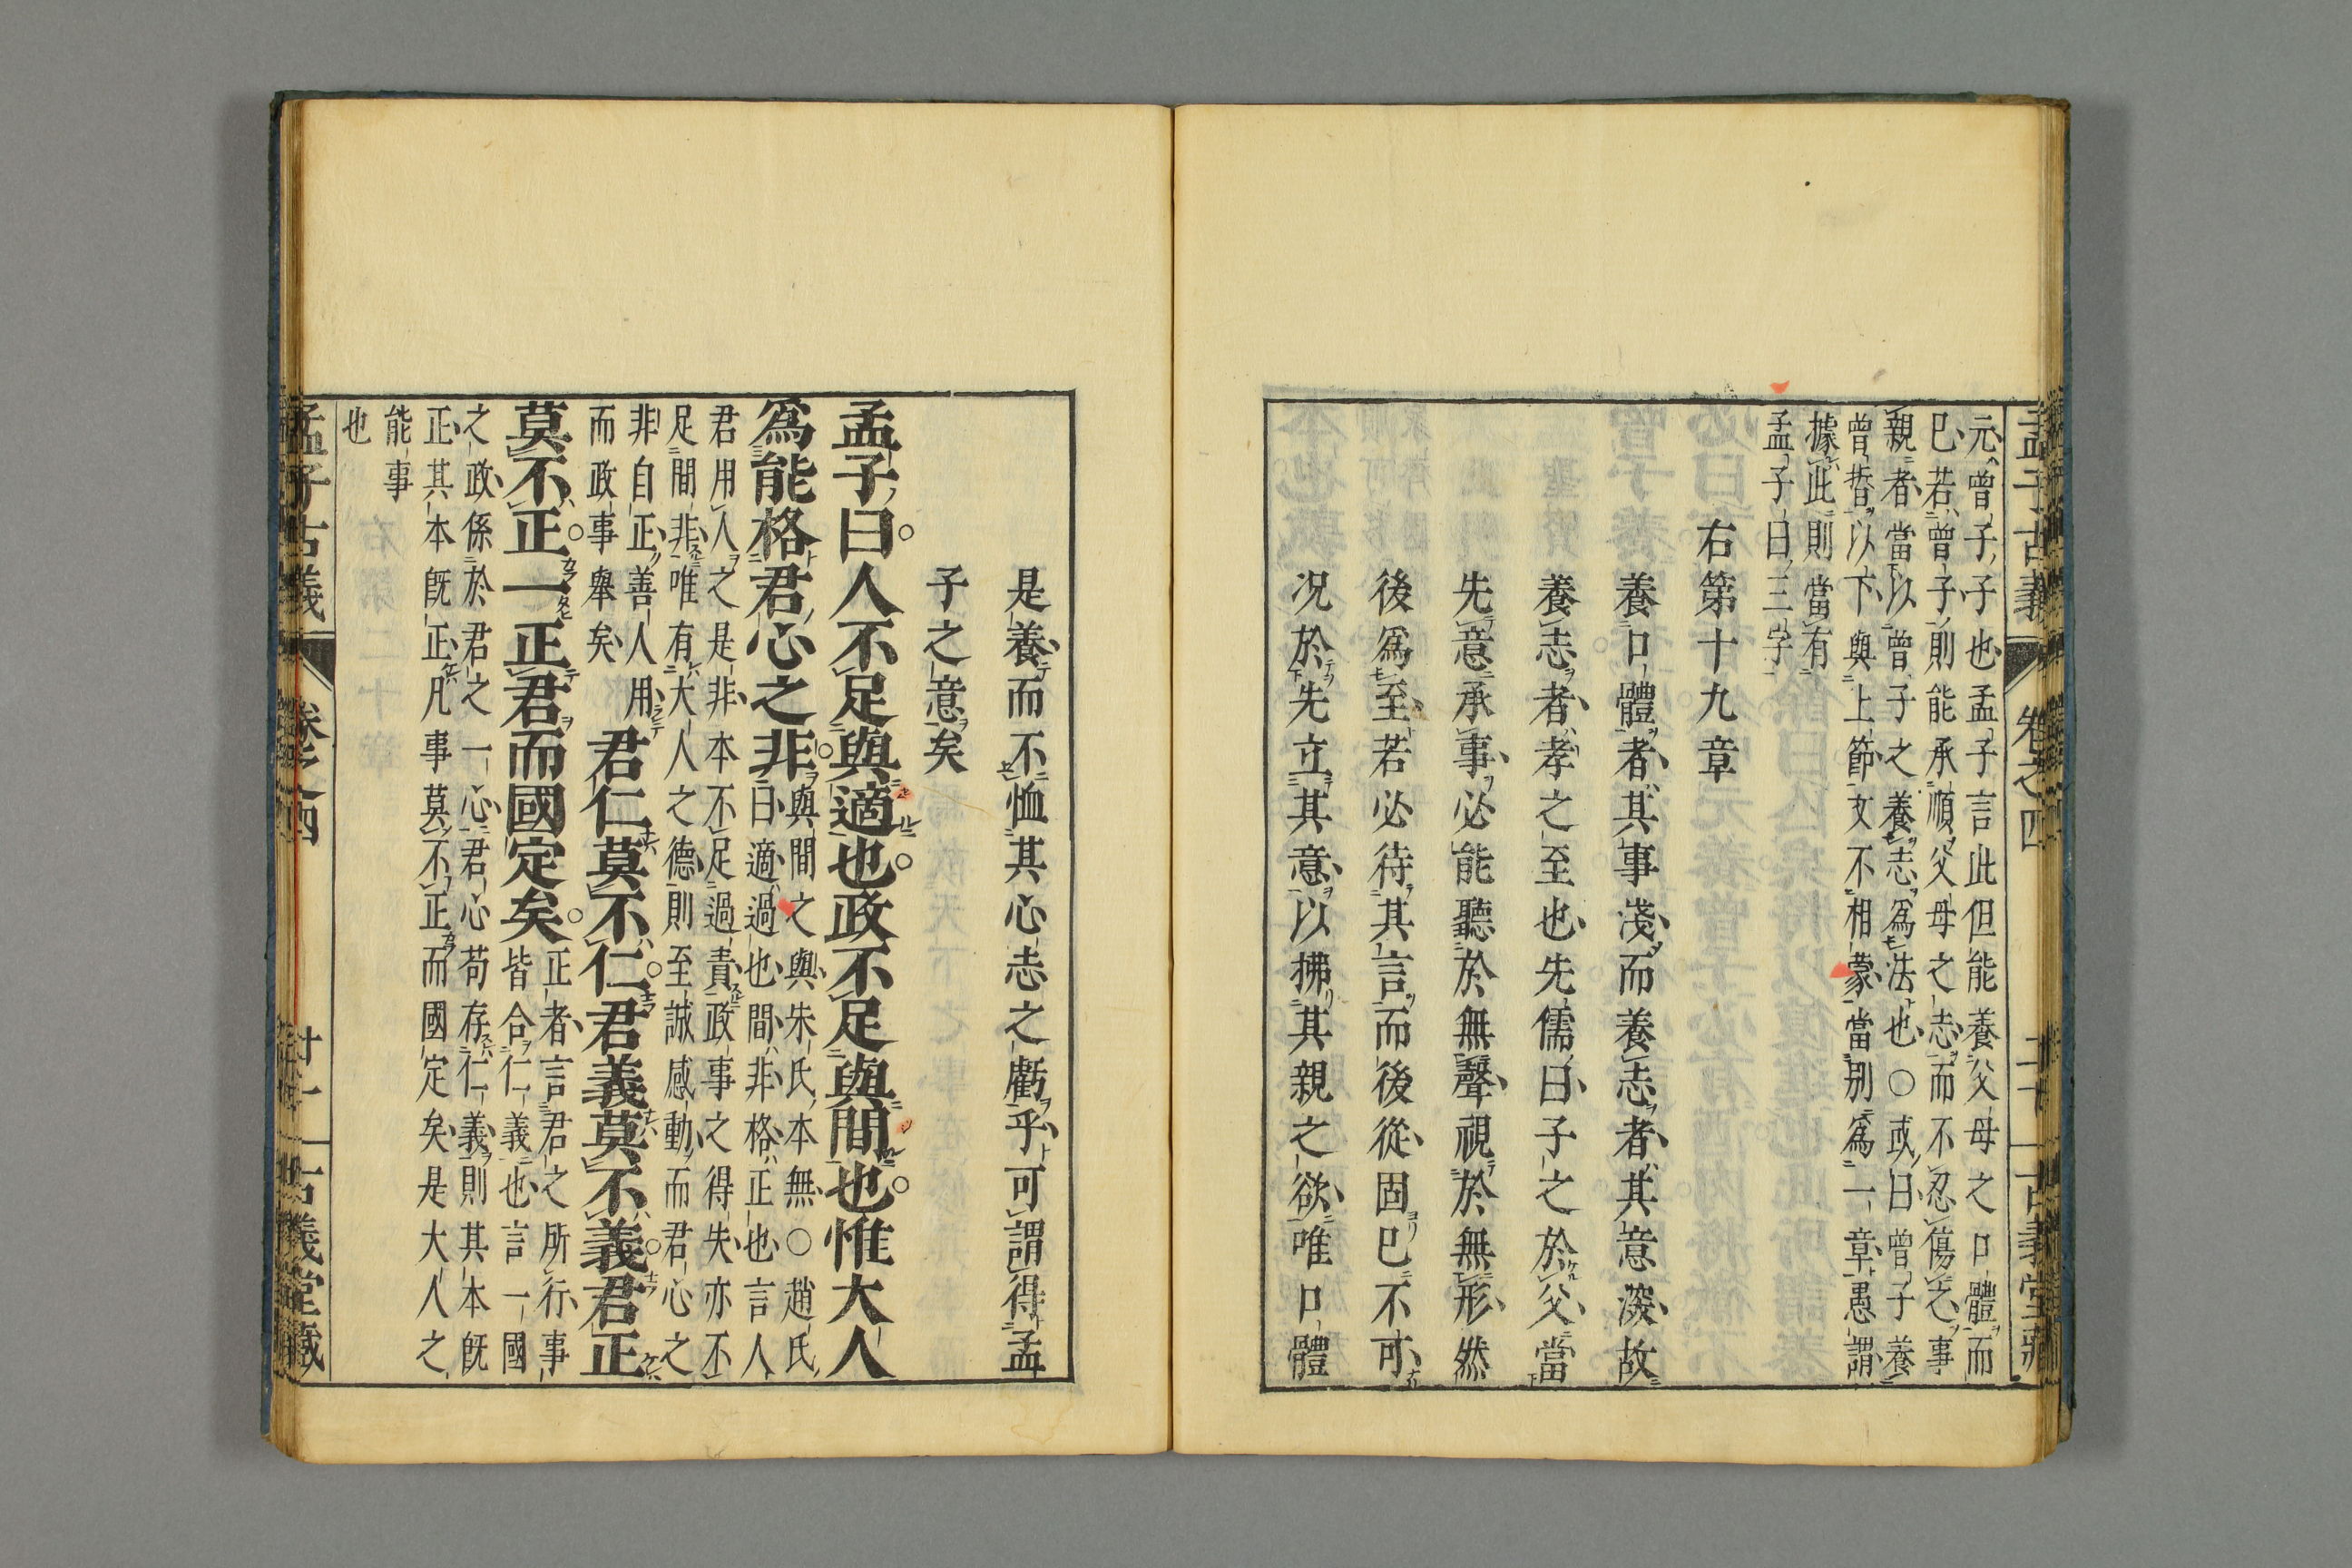 元曾子子也孟子言此但能養父母之口體而
已若曾子則能承順父母之志而不忍傷之事
親者當以曾子之養志爲法也○或曰曾子養
曾晳以下與上節文不相蒙當別爲一章愚謂
據此則當有
孟子曰三字
右第十九章
養口體者其事淺而養志者其意深故
養志者孝之至也先儒曰子之於父當
先意承事必能聽於無聲視於無形然
後爲至若必待其言而後從固已不可
况於先立其意以拂其親之欲唯口體
是養而不恤其心志之虧乎可謂得孟
子之意矣
孟子曰人不足與適也政不足與間也惟大人
爲能格君心之非
與間之與朱氏本無○趙氏
曰適過也間非格正也言人
君用人之是非本不足過責政事之得失亦不
足間非唯有大人之德則至誠感動而君心之
非自正善人用
而政事舉矣
君仁莫不仁君義莫不義君正
莫不正一正君而國定矣
正者言君之所行事
皆合仁義也言一國
之政係於君之一心君心苟存仁義則其本既
正其本既正凡事莫不正而國定矣是大人之
能事
也
孟子古義
卷之四
古義堂藏